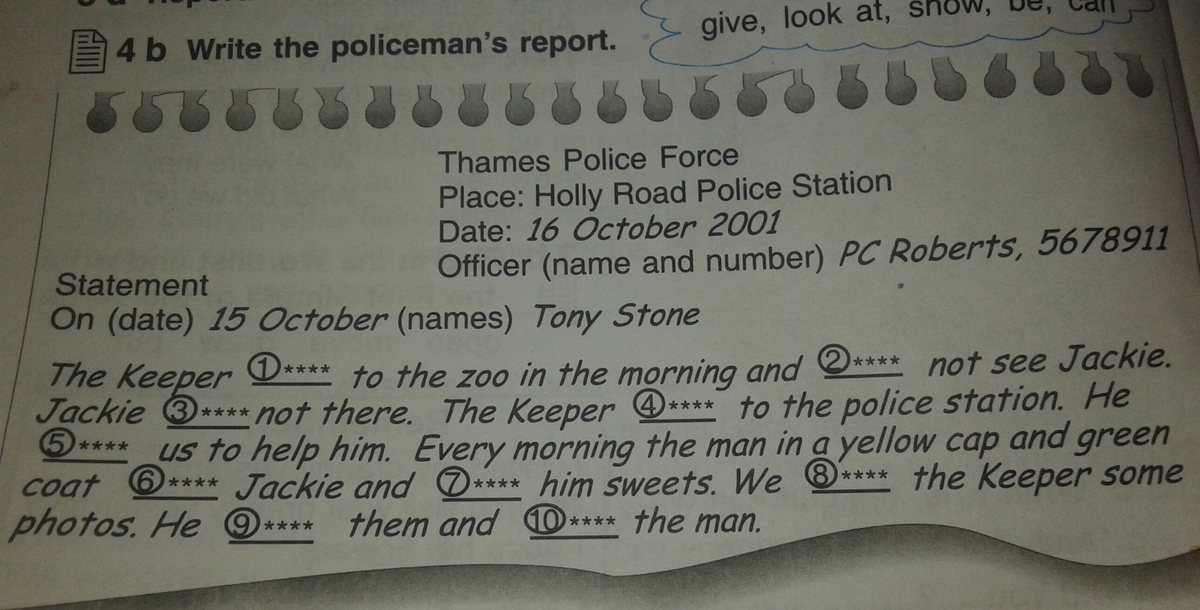 give, look at, show, be, can
4 b Write the policeman's report.
Thames Police Force
Place: Holly Road Police Station
Date: 16 October 2001
Officer (name and number) PC Roberts, 5678911
Statement
On (date) 15 October (names) Tony Stone
The Keeper ①**** to the zoo in the morning and ②**** not see Jackie.
Jackie ③**** not there. The Keeper ④**** to the police station. He
⑤**** us to help him. Every morning the man in a yellow cap and green
coat ⑥**** Jackie and ⑦**** him sweets. We ⑧**** the Keeper some
photos. He ⑨**** them and ⑩**** the man.